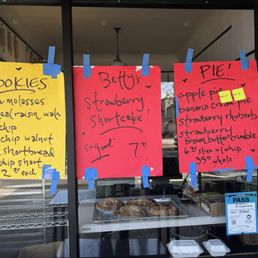 OOKIES
molasses
raisin wal
chip
chip walnut
shortbread
chip short
2 ea
Betty's
strawberry
shortcake!
So good!
7
PIE!
apple pie
banana cream pie
strawberry rhubarb
strawberry
brown butter crumble
slice w/whip
35 whole
PASS